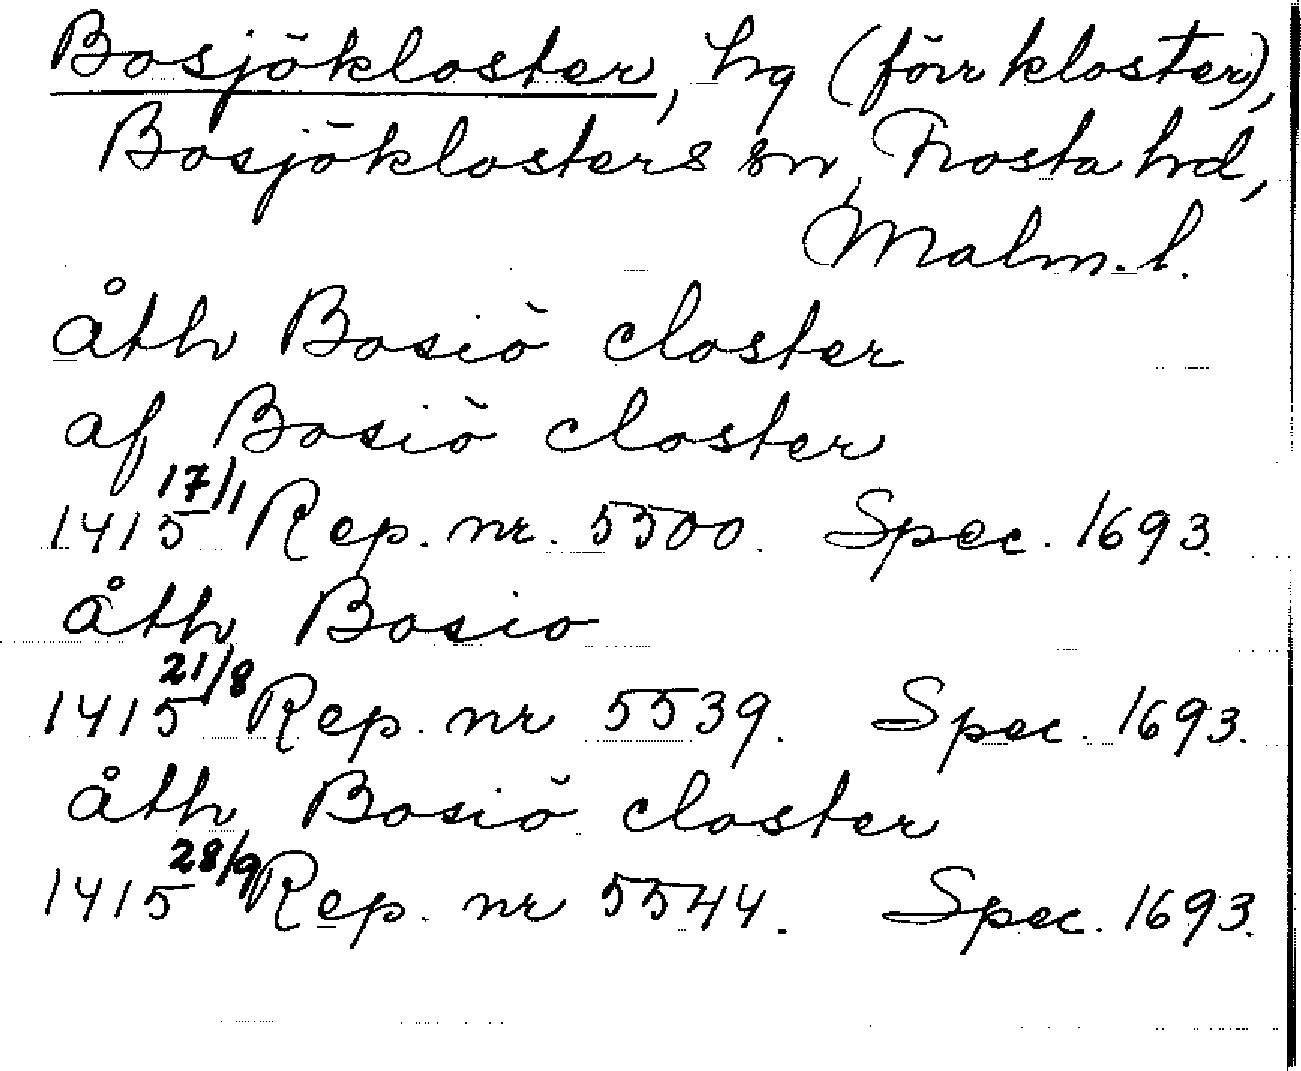 Bosjökloster, hg (förr kloster),
Bosjöklosters sn, Frosta hd,
Malm. l.
åth Bosiö closter
af Bosiö closter
1415 17/1 Rep. nr. 5500. Spec. 1693.
åth Bosio
1415 21/8 Rep. nr 5539. Spec. 1693.
åth Bosiö closter
1415 28/9 Rep. nr 5544. Spec. 1693.